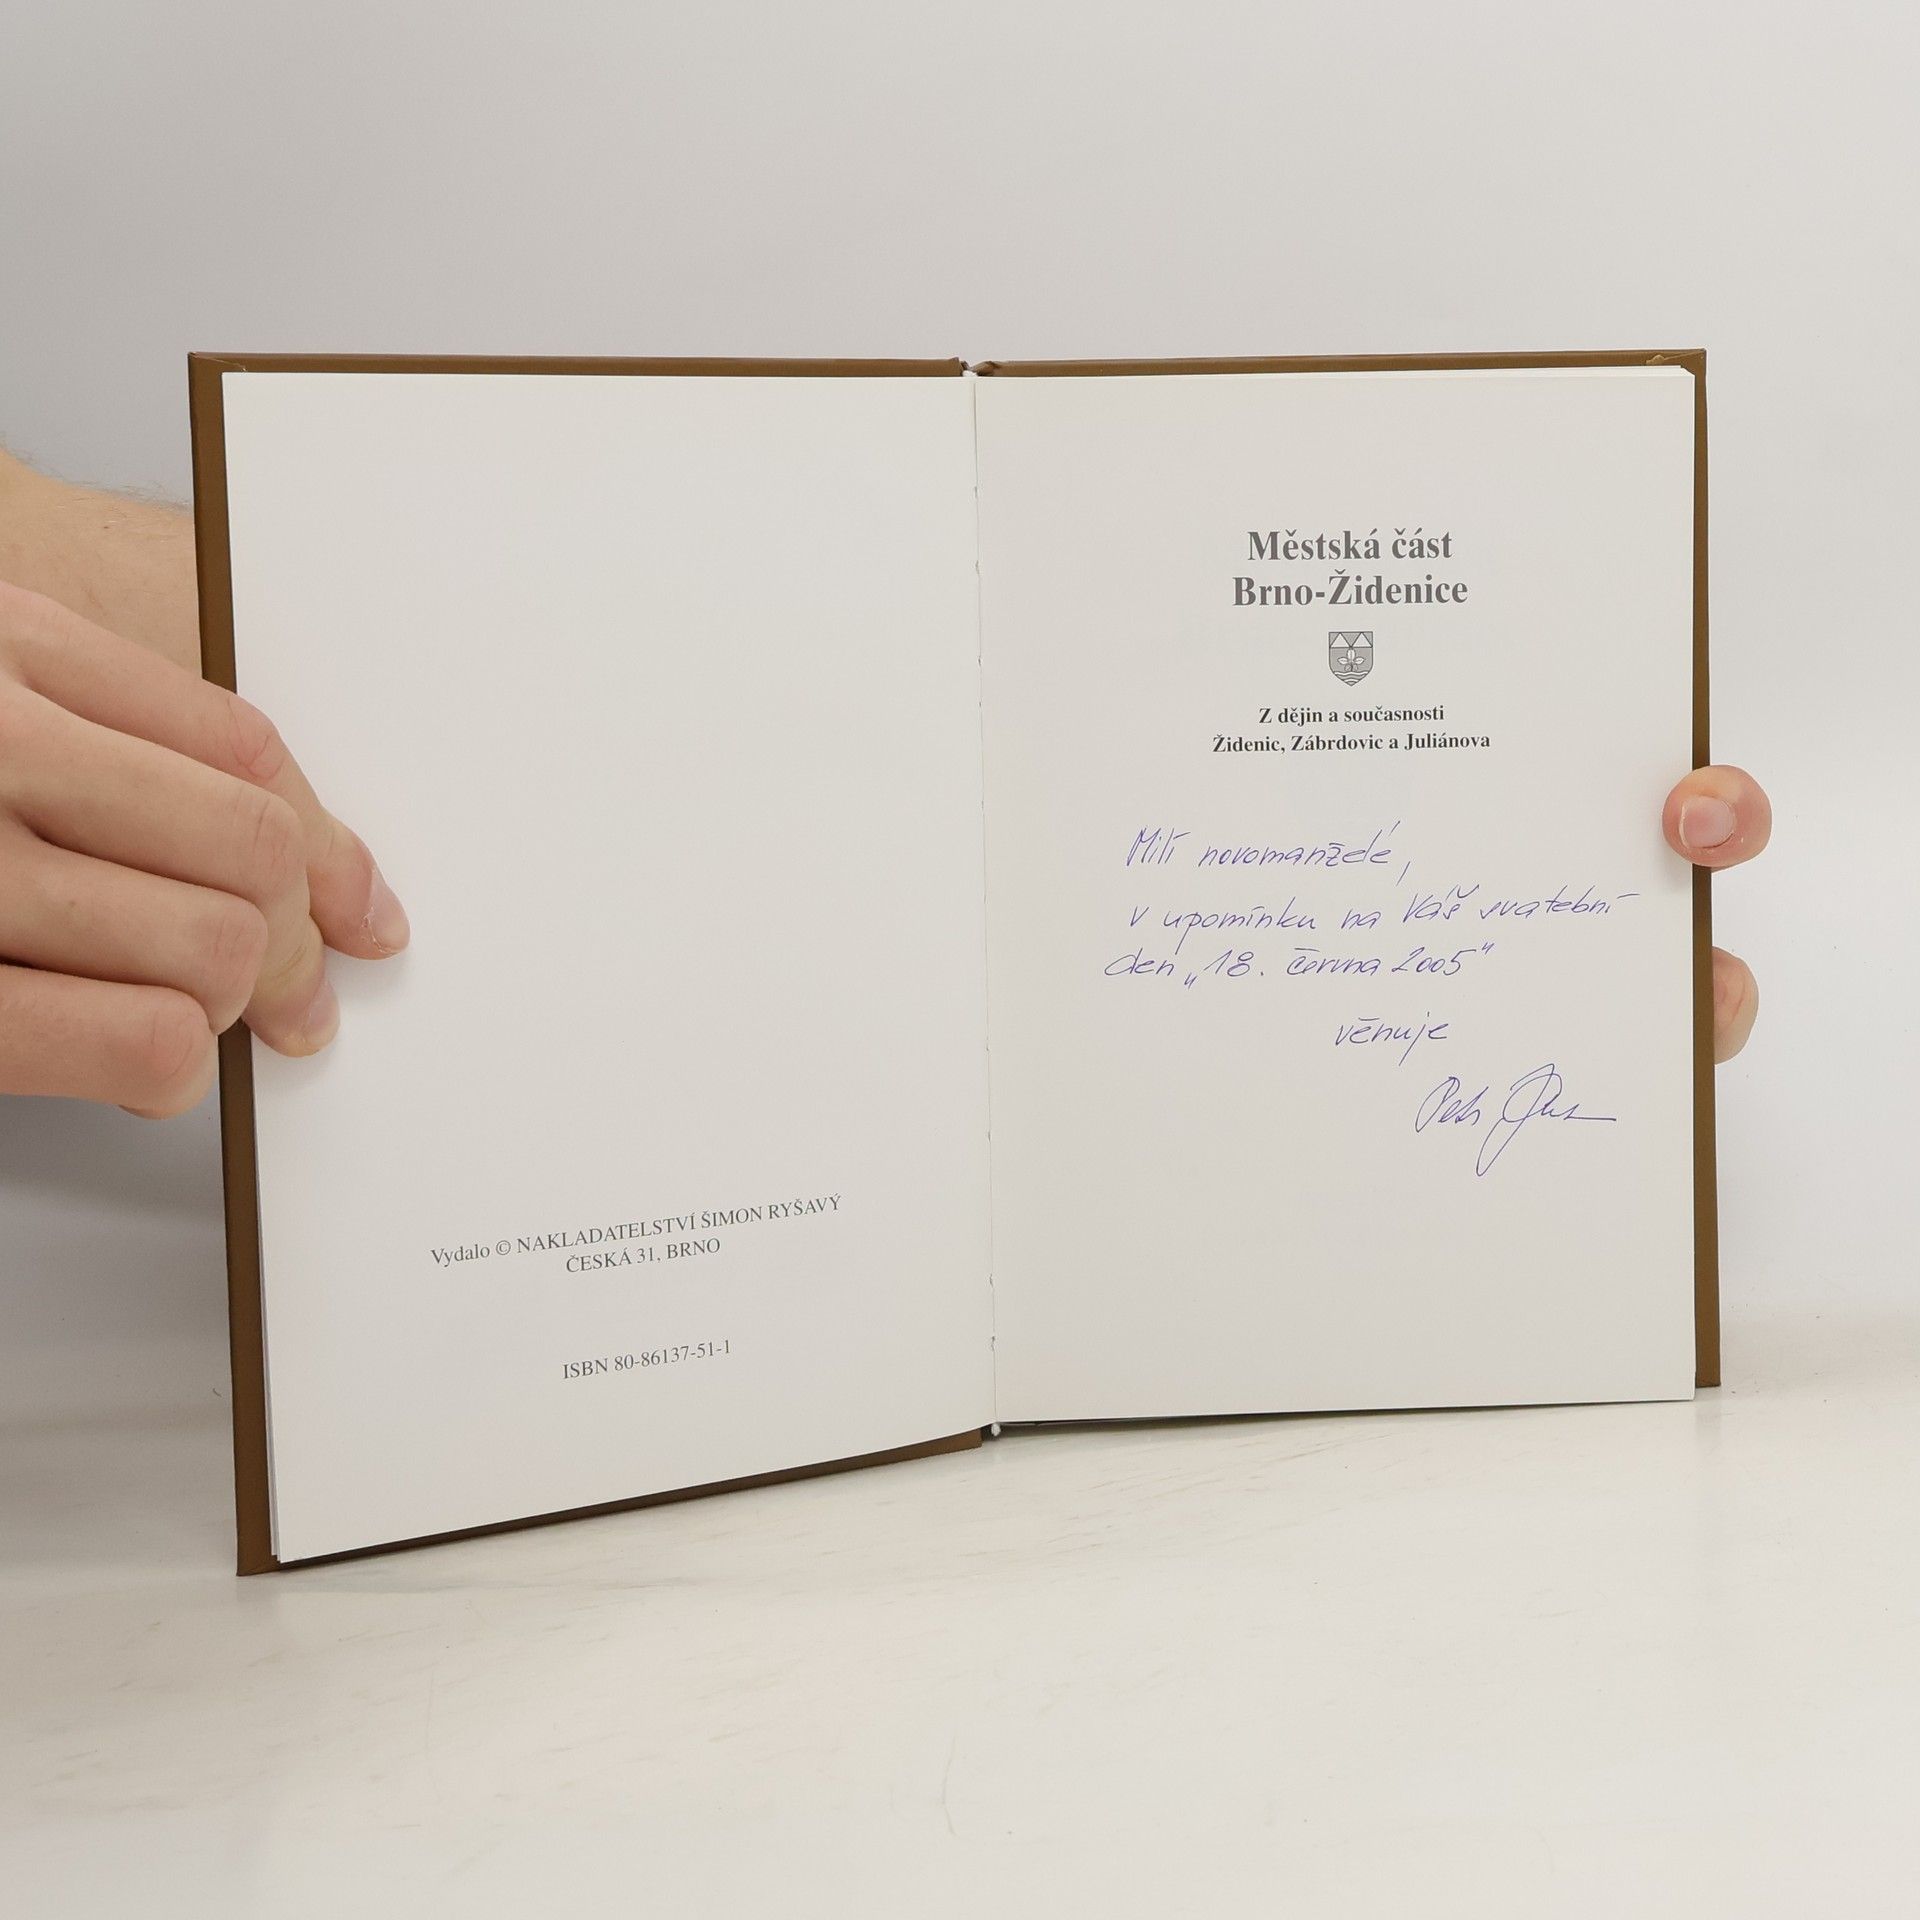 Vydalo © NAKLADATELSTVÍ ŠIMON RYŠAVÝ
ČESKÁ 31, BRNO
ISBN 80-86137-51-1
Městská část
Brno-Židenice
Z dějin a současnosti
Židenic, Zábrdovic a Juliánova
Milí novomanželé,
v upomínku na Váš svatební
den „18. června 2005"
věnuje
Petr